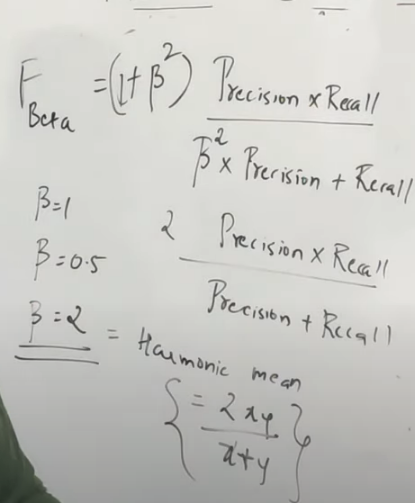 F Beta = (1+β²) Precision x Recall
β² x Precision + Recall
β=1
2 Precision x Recall
β=0.5
Precision + Recall
β=2 = Harmonic mean
{ = 2xy
x+y }